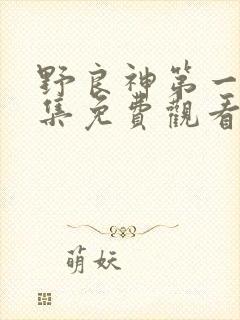 野良神第一
集免費觀看
萌妖